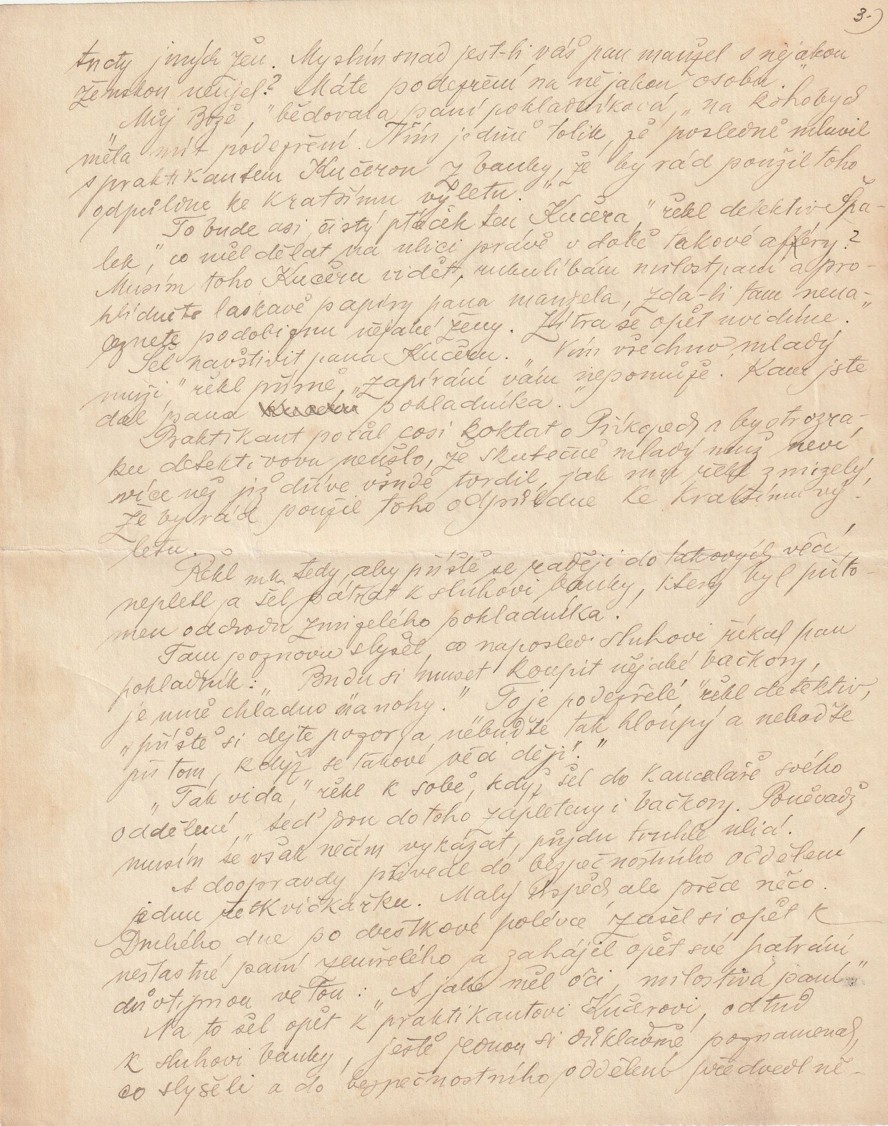 3.)
tudy jiných žen. Myslíte snad jest-li váš pan manžel s nějakou
ženskou neujel? Máte podezření na nějakou osobu."
"Můj Bože," bědovala paní pokladníková, "na kohobych
měla mít podezření. Vím jedině tolik, že posledně mluvil
s praktikantem Kučerou z banky, že by rád použil toho
odpůldne ke kratšímu výletu."
"To bude asi čistý ptáček ten Kučera," řekl detektiv Špa-
lek, "co měl dělat na ulici právě v době takové afféry?
Musím toho Kučeru vidět, rukulíbám milostpaní a pro-
hlídněte laskavě papíry pana manžela, zda-li tam nena-
leznete podobiznu nějaké ženy. Zítra se opět uvidíme."
Šel navštívit pana Kučeru. "Vím všechno, mladý
muži," řekl přísně, "zapírání vám nepomůže. Kam jste
dal pana pokladníka."
Praktikant počal cosi koktat o Příkopech a bystrozra-
ku detektivovu neušlo, že skutečně mladý muž neví
více než již dříve všude tvrdil, jak mu řekl zmizelý,
že by rád použil toho odpůldne ke kratšímu vý-
letu.
Řekl mu tedy, aby příště se raději do takových věcí
nepletl a šel pátrat k sluhovi banky, který byl příto-
men odchodu zmizelého pokladníka.
Tam poznovu slyšel, co naposled sluhovi říkal pan
pokladník: "Budu si muset koupit nějaké bačkory,
je mně chladno na nohy." "To je podezřelé" řekl detektiv,
"příště si dejte pozor a nebuďte tak hloupý a nebuďte
při tom, když se takové věci dějí."
"Tak vida," řekl k sobě, když šel do kanceláře svého
oddělení, "teď jsou do toho zapleteny i bačkory. Poněvadž
musím se však něčím vykázat, půjdu touhle ulicí.
A doopravdy převede do bezpečnostního oddělení
jednu ředkvičkářku. Malý úspěch ale přece něco.
Druhého dne po dršťkové polévce zašel si opět k
nešťastné paní zemřelého a zahájil opět své pátrání
důvtipnou větou: "A jaké měl oči, milostivá paní"
Na to šel opět k praktikantovi Kučerovi, odtud
k sluhovi banky, ještě jednou si důkladně poznamenal,
co slyšeli a do bezpečnostního oddělení předvedl ně-